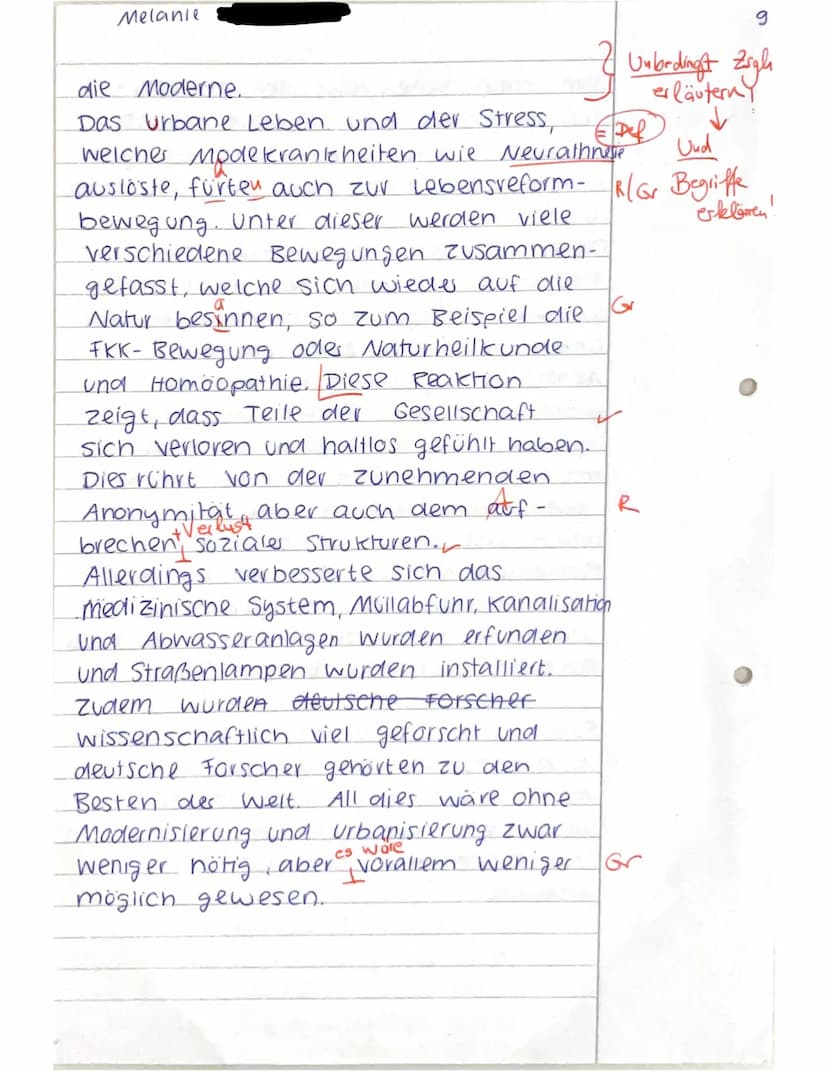 Melanie
9
die Moderne.
Unbedingt Zsgh
erläutern!
Das urbane Leben und der Stress,
= Def
welches Modekrankheiten wie Neurathnesie
Und
auslöste, fürten auch zur Lebensreform-
R/Gr Begriffe
erklären!
bewegung. Unter dieser werden viele
verschiedene Bewegungen zusammen-
gefasst, welche sich wieder auf die
a
Natur besinnen, so zum Beispiel die
Gr
FKK-Bewegung oder Naturheilkunde
und Homöopathie. Diese Reaktion
zeigt, dass Teile der Gesellschaft
sich verloren und haltlos gefühlt haben.
Dies rührt von der zunehmenden
Anonymität, aber auch dem auf-
R
+ Verlust
brechen sozialer Strukturen.
Allerdings verbesserte sich das
Medizinische System, Müllabfuhr, Kanalisation
und Abwasseranlagen wurden erfunden
und Straßenlampen wurden installiert.
Zudem wurden deutsche Forscher
wissenschaftlich viel geforscht und
deutsche Forscher gehörten zu den
Besten der Welt. All dies wäre ohne
Modernisierung und Urbanisierung zwar
es wäre
weniger nötig, aber vorallem weniger
Gr
möglich gewesen.